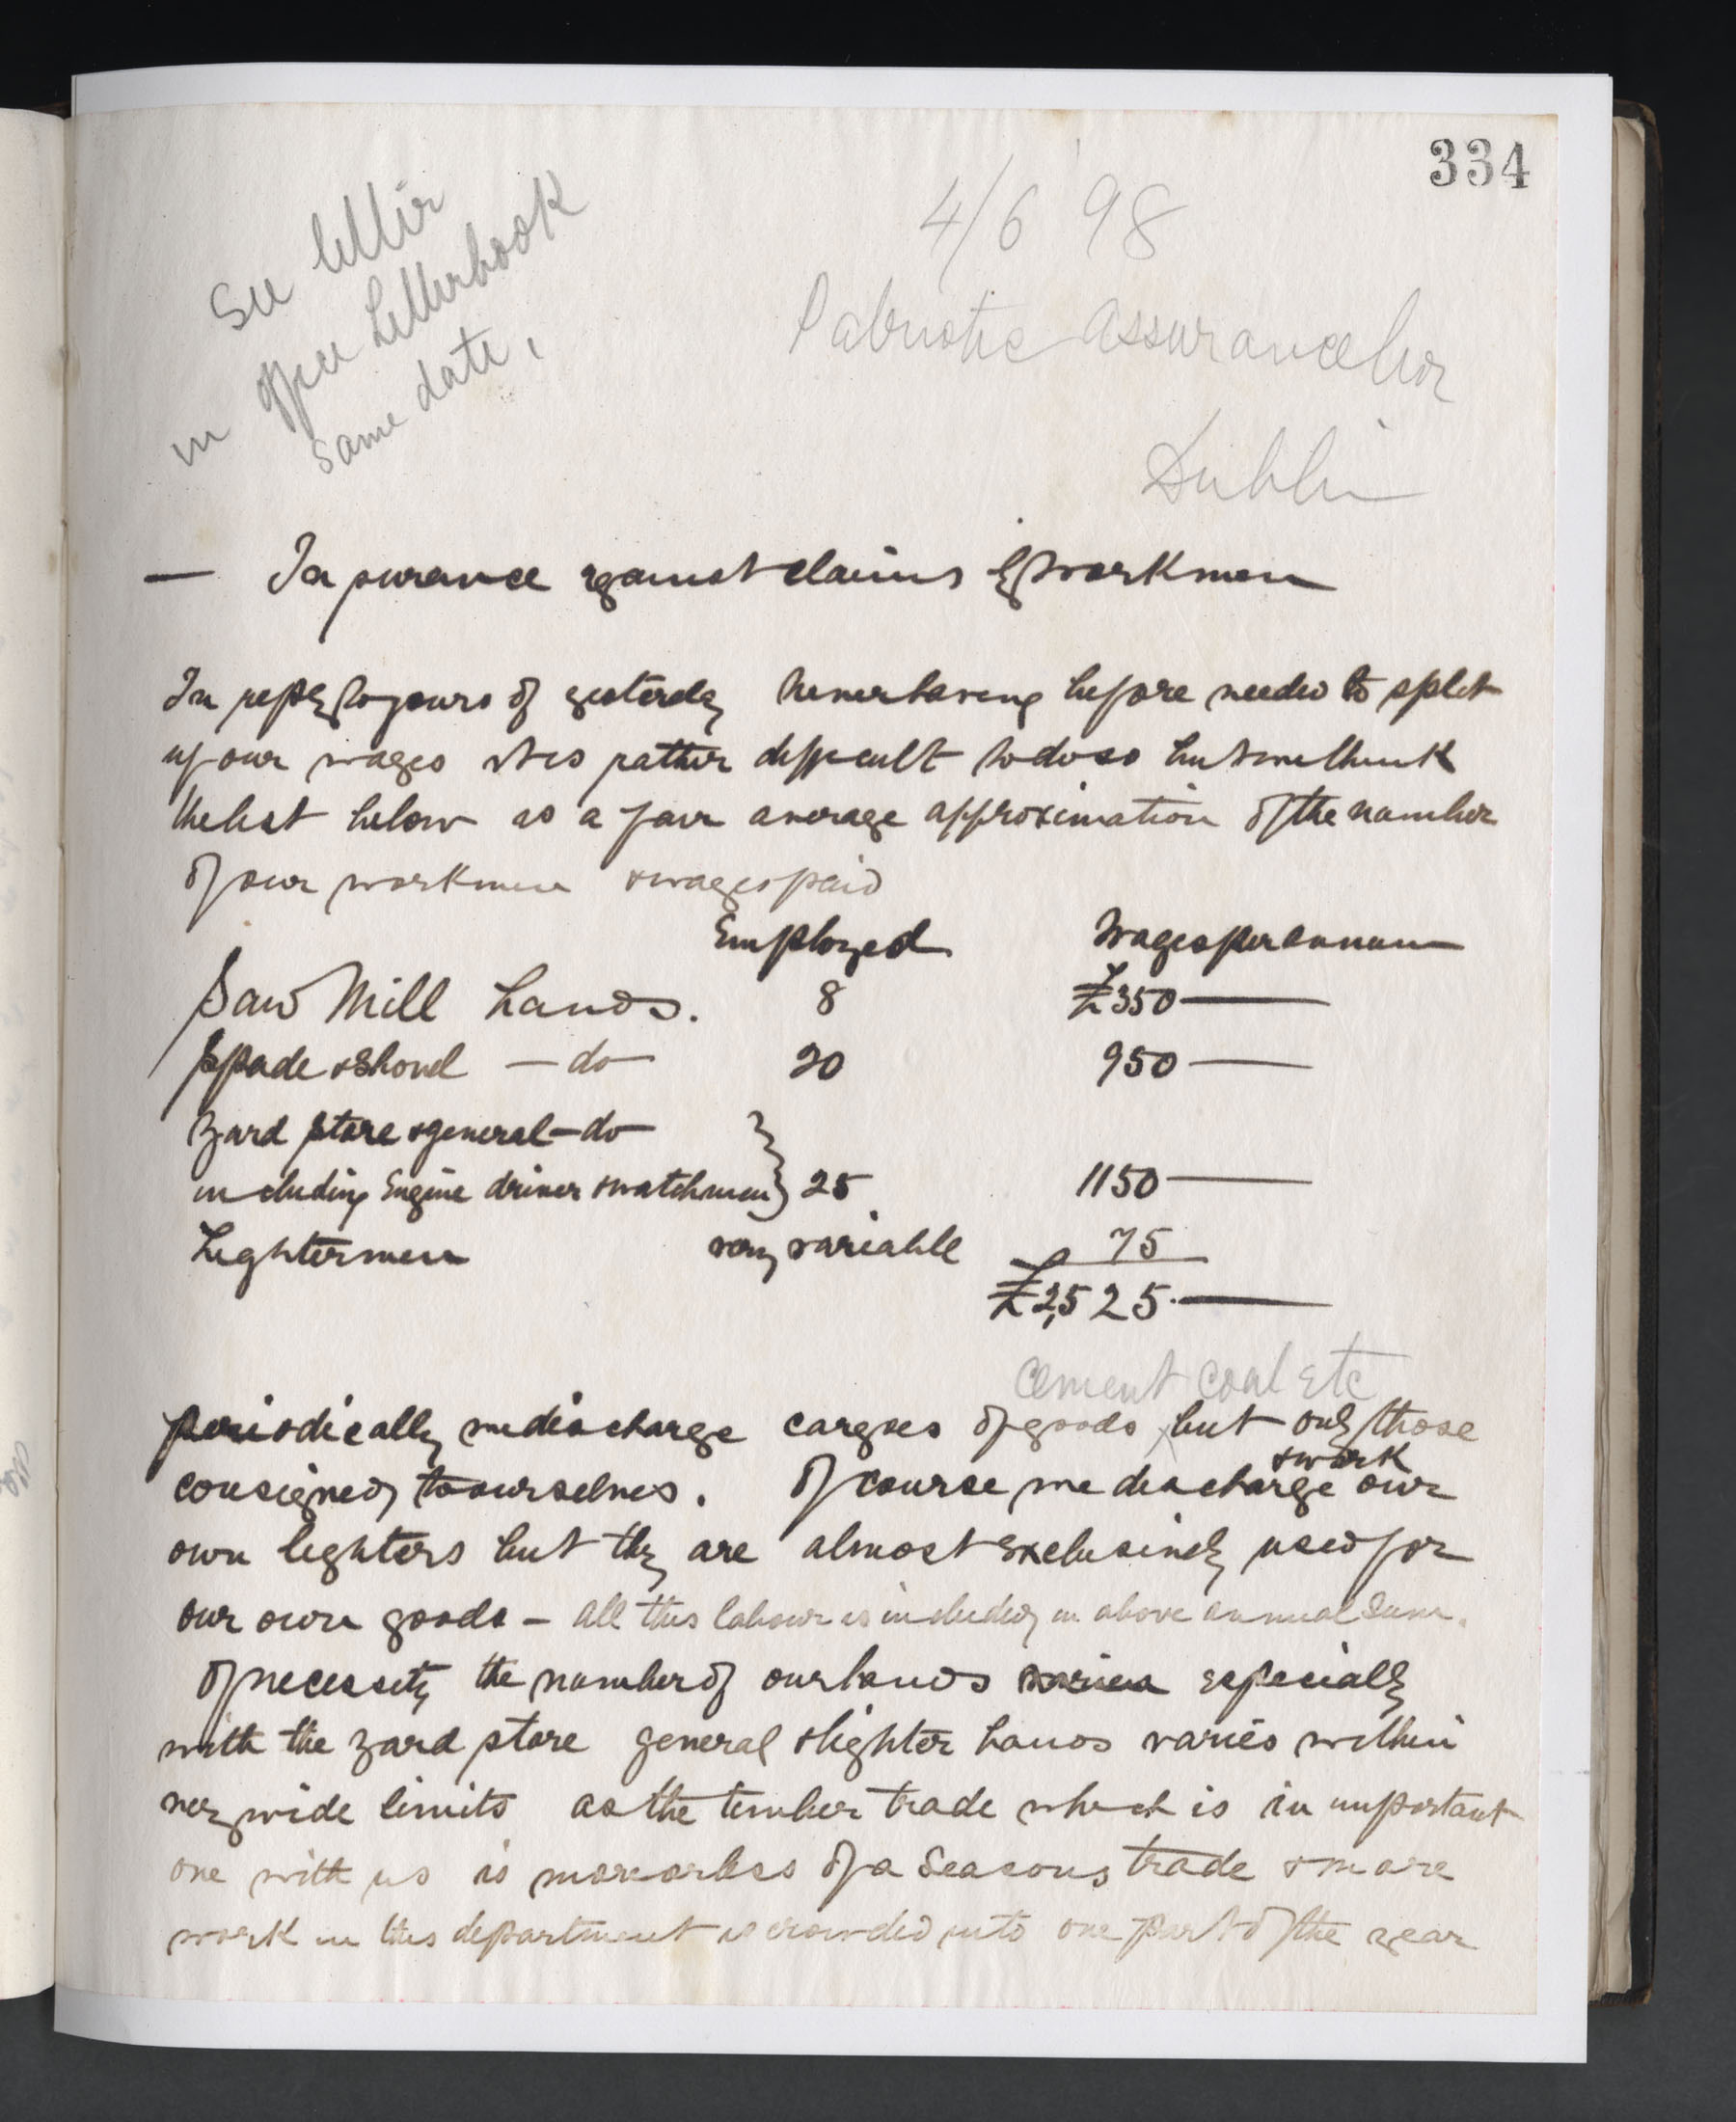 334
See letter
in office Letterbook
same date,
4/6 98
Patriotic Assurance Cor
Dublin
— Insurance against claims by workmen
In reply to yours of yesterday Never having before needed to split
up our wages it is rather difficult to do so but we think
the list below is a fair average approximation of the number
of our workmen & wages paid
Employed Wages per annum
Saw Mill hands. 8 £350 —
Spade & Shovel — do — 20 950 —
Yard store & general — do —
including Engine driver & watchmen } 25 1150 —
Lightermen very variable 75
£2,525. —
cement coal etc
Periodically we discharge cargoes of goods, but only those
consigned to ourselves. Of course we discharge & work our
own lighters but they are almost exclusively used for
our own goods – all this labour is included in above annual sum.
Of necessity the number of our hands varies especially
with the yard store general & lighter hands varies within
very wide limits as the timber trade which is an important
one with us is more or less of a Seasons trade & more
work in this department is crowded into one part of the year